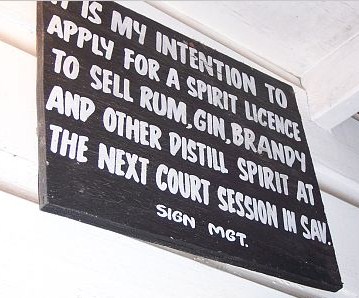 IT IS MY INTENTION TO
APPLY FOR A SPIRIT LICENCE
TO SELL RUM, GIN, BRANDY
AND OTHER DISTILL SPIRIT AT
THE NEXT COURT SESSION IN SAV.
SIGN MGT.